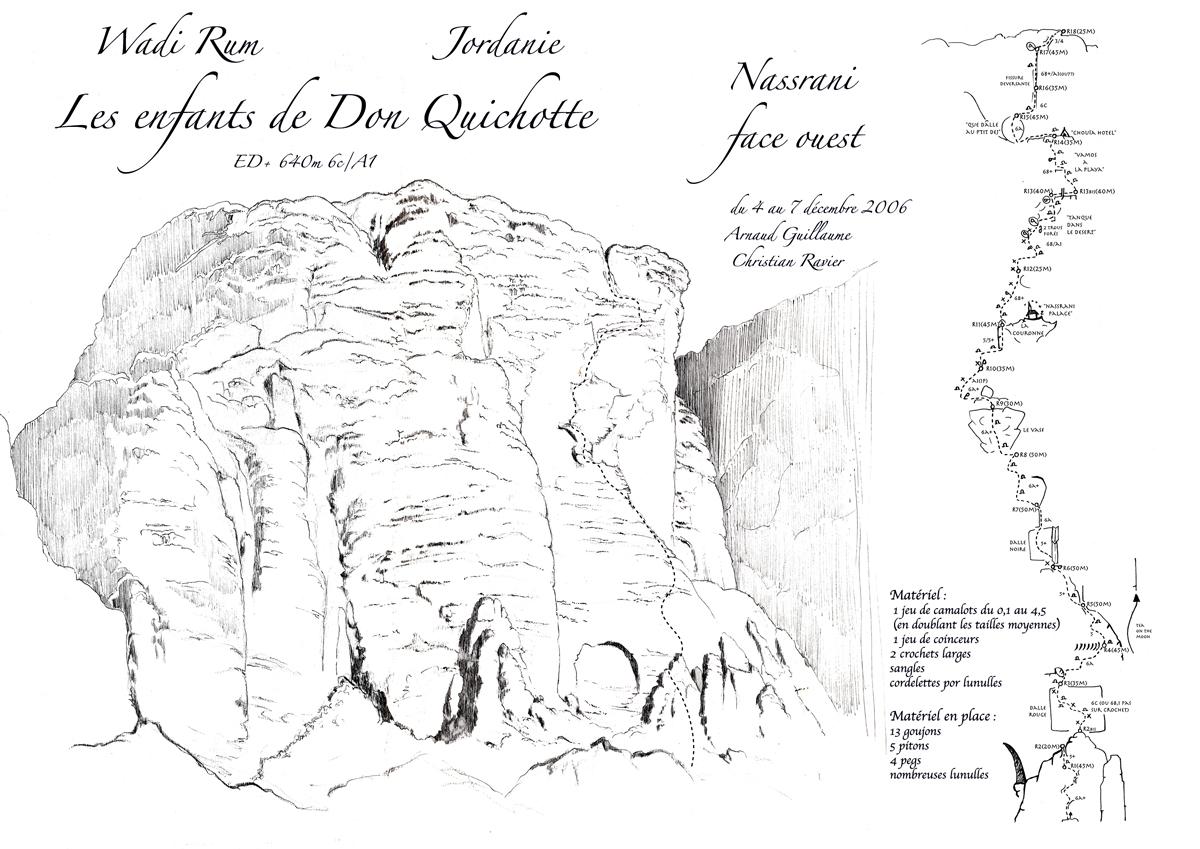 Wadi Rum
Jordanie
Les enfants de Don Quichotte
ED+ 640m 6c/A1
Nassrani
face ouest
du 4 au 7 décembre 2006
Arnaud Guillaume
Christian Ravier
Matériel :
1 jeu de camalots du 0,1 au 4,5
(en doublant les tailles moyennes)
1 jeu de coinceurs
2 crochets larges
sangles
cordelettes por lunulles
Matériel en place :
13 goujons
5 pitons
4 pegs
nombreuses lunulles
R18(25M)
3/4
R17(45M)
FISSURE
DEVERSANTE
R16(35M)
6C
R15(45M)
"QUE DALLE
AU P'TIT DEJ"
6A
"CHOUIA HOTEL"
R14(35M)
"VAMOS
A
LA PLAYA"
6B+
R13(40M)
R13BIS(40M)
2 TROUS
FORÉS
"TANQUE
DANS
LE DESERT"
6B/A1
R12(25M)
6B+
"NASSRANI
PALACE"
R11(45M)
LA
COURONNE
5/5+
R10(35M)
A1(1P)
6A+
R9(30M)
6A+
LE VASE
R8 (50M)
6A+
R7(50M)
6A
DALLE
NOIRE
5+
R6(50M)
5+
R5(50M)
TEA
ON THE
MOON
R4(45M)
6A
R3(35M)
DALLE
ROUGE
6C (OU 6B,1 PAS
SUR CROCHET)
R2BIS
R2(20M)
5+
R1(45M)
6A+